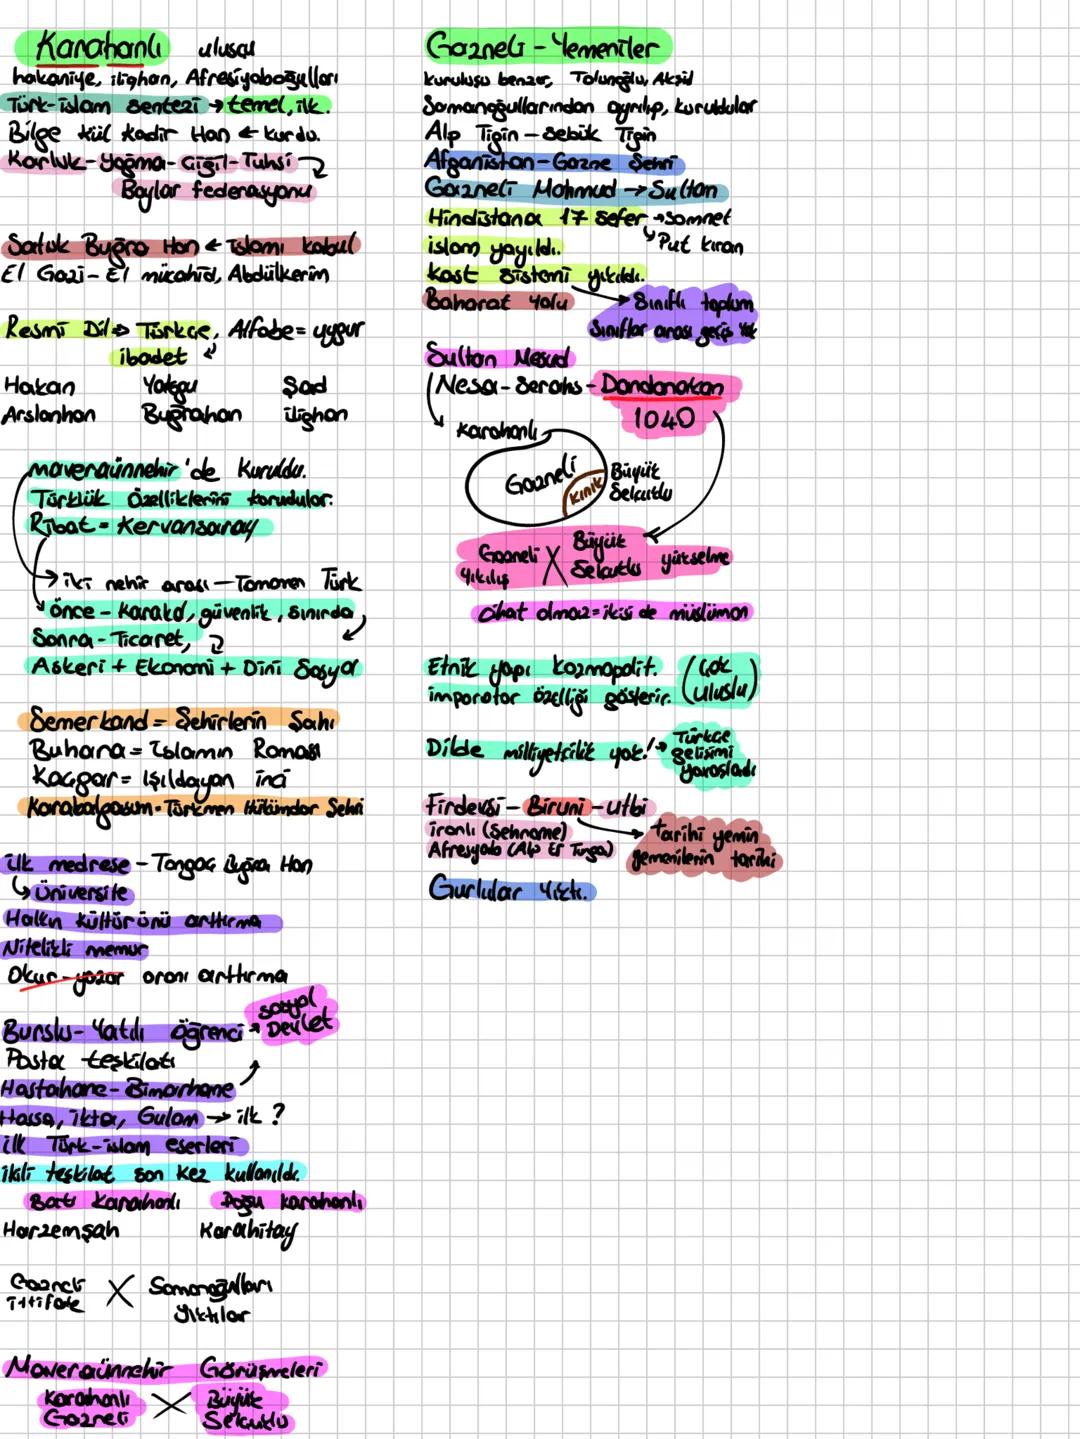 Karahanlı ulusçu
hakaniye, ilighan, Afresiyaboğulları
Türk-islam sentezi → temel, ilk.
Bilge kül kadir Han ← kurdu.
Karluk-Yağma-Çigil-Tuhsi
Boylar federasyonu
Satuk Buğra Han ← islamı kabul
El Gazi - El mücahid, Abdülkerim
Resmi Dil ⇒ Türkçe, Alfabe = uygur
ibadet
Hakan Yabgu Şad
Arslanhan Buğrahan ilighan
maveraünnehir'de kuruldu.
Türklük özelliklerini korudular.
Ribat = kervansaray
→ iki nehir arası - Tamamen Türk
önce - karakol, güvenlik, sınırda
Sonra - Ticaret,
Askeri + Ekonomi + Dini Sosyal
Semerkand = Şehirlerin Şahı
Buhara = islamın Roması
Kaşgar = ışıldayan inci
Karabalgasun = Türkmen Hükümdar Şehri
ilk medrese - Tamgaç Buğra Han
üniversite
Halkın kültürünü arttırma
Nitelikli memur
Okur-yazar oranı arttırma
sosyal
Burslu-Yatılı öğrenci → Devlet
Posta teşkilatı
Hastahane - Bimarhane
Hassa, ikta, Gulam → ilk ?
ilk Türk-islam eserleri
ikili teşkilat son kez kullanıldı.
Batı Karahanlı Doğu karahanlı
Harzemşah Karahitay
Gazneli X Samanoğulları
ittifak yıktılar
Maveraünnehir Görüşmeleri
Karahanlı X Büyük
Gazneli Selçuklu
Gazneli - Yemeniler
kuruluşu benzer, Tolunoğlu, Akşid
Samanoğullarından ayrılıp, kuruldular
Alp Tigin - Sebük Tigin
Afganistan - Gazne Şehri
Gazneli Mahmud → Sultan
Hindistana 17 sefer → Somnet
islam yayıldı. Put kıran
kast sistemi yıkıldı.
Baharat yolu → Sınıflı toplum
Sınıflar arası geçiş yok
Sultan Mesud
Nesa - Serahs - Dandanakan
1040
Karahanlı
Gazneli
kınık
Büyük
Selçuklu
Gazneli X Büyük
yıkılış Selçuklu yükselme
cihat olmaz = ikisi de müslüman
Etnik yapı kozmopolit. (çok
imparator özelliği gösterir. uluslu)
Dilde milliyetçilik yok! → Türkçe
gelişimi
yavaşladı
Firdevsi - Biruni - utbi
iranlı (Şehname) → tarihi yemin
Afresyab (Alp Er Tunga) yemenilerin tarihi
Gurlular yıktı.